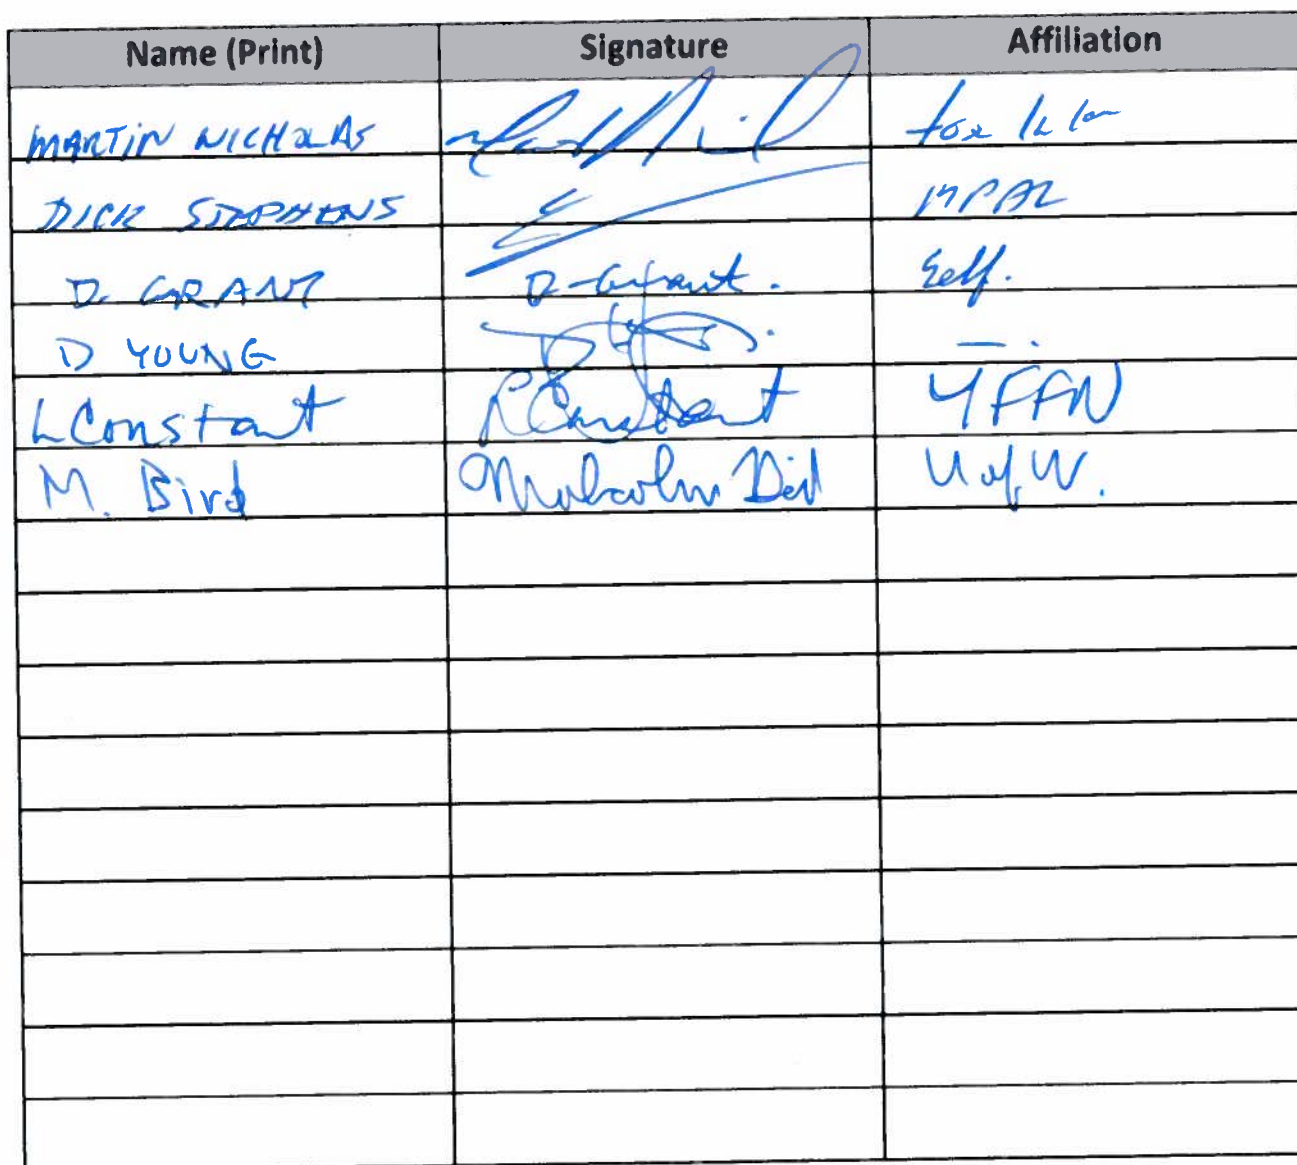 Name (Print) Signature Affiliation
MARTIN NICHOLAS
DICK STEPHENS
D. GRANT D-Grant. Self.
D YOUNG — .
L Constant L Constant YFFN
M. Bird Malcolm Bird U of W.